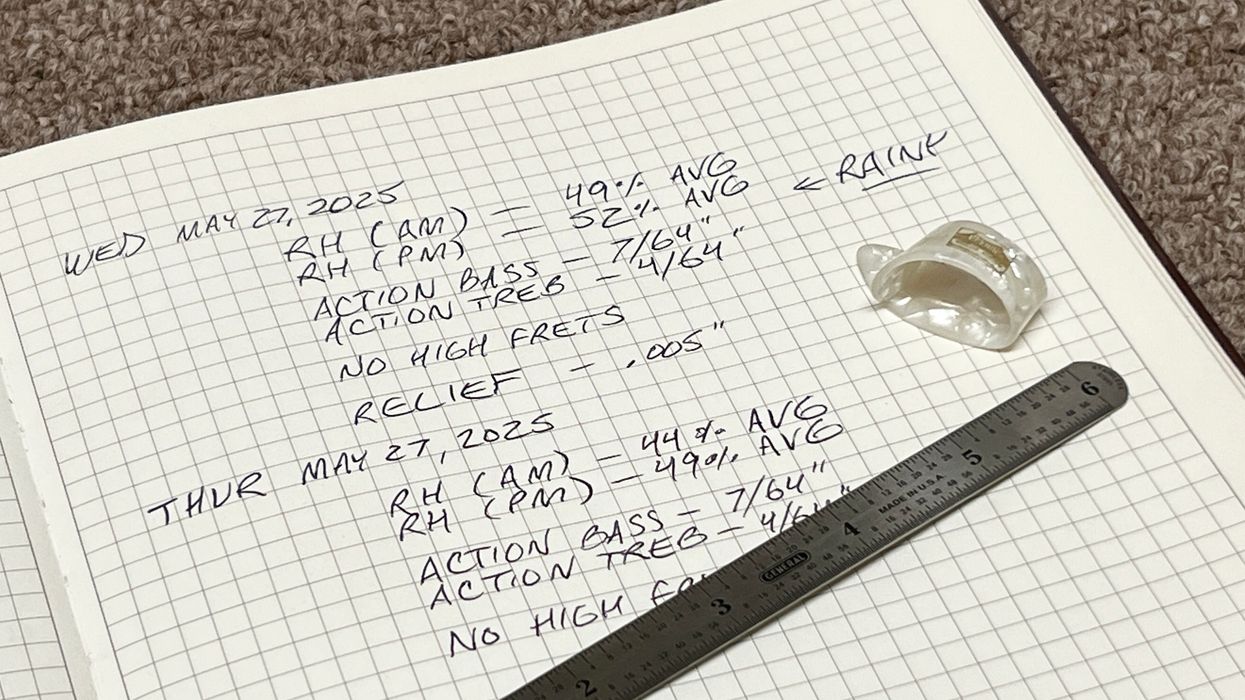 WED MAY 27, 2025
RH (AM) — 49% AVG
RH (PM) — 52% AVG ← RAINY
ACTION BASS — 7/64"
ACTION TREB — 4/64"
NO HIGH FRETS
RELIEF — .005"
THUR MAY 27, 2025
RH (AM) — 44% AVG
RH (PM) — 49% AVG
ACTION BASS — 7/64"
ACTION TREB — 4/64"
NO HIGH
2 3 4 5 6
GENERAL
MADE IN U.S.A